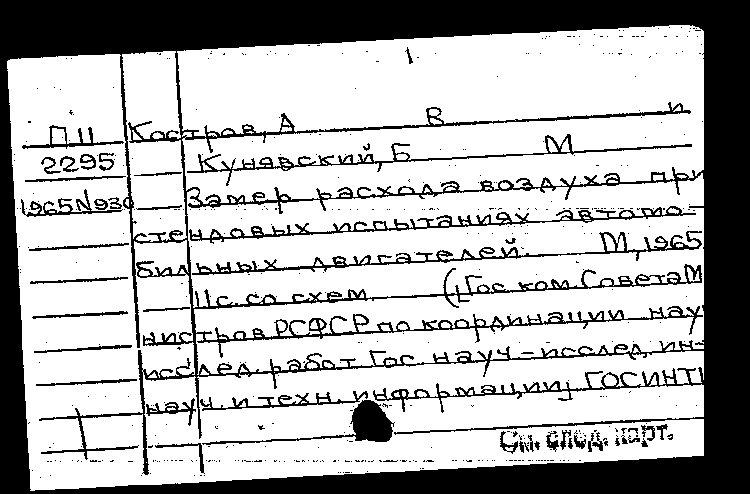 1
П11 Костров, А В и
2295 Кунявский, Б М
1965N930 Замер расхода воздуха при
стендовых испытаниях автомо-
бильных двигателей. М, 1965
11с. со схем. ([Гос ком. Совета Ми
нистров РСФСР по координации науч
исслед. работ Гос. науч-исслед. ин-
науч. и техн. информации] ГОСИНТИ
См. след. карт.